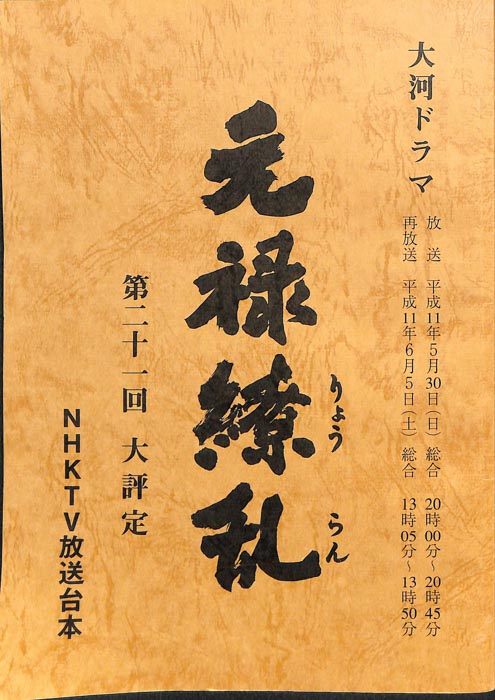 大河ドラマ
放送 平成11年5月30日(日) 総合 20時00分~20時45分
再放送 平成11年6月5日(土) 総合 13時05分~13時50分
元禄繚乱
りょう らん
第二十一回 大評定
NHKTV放送台本